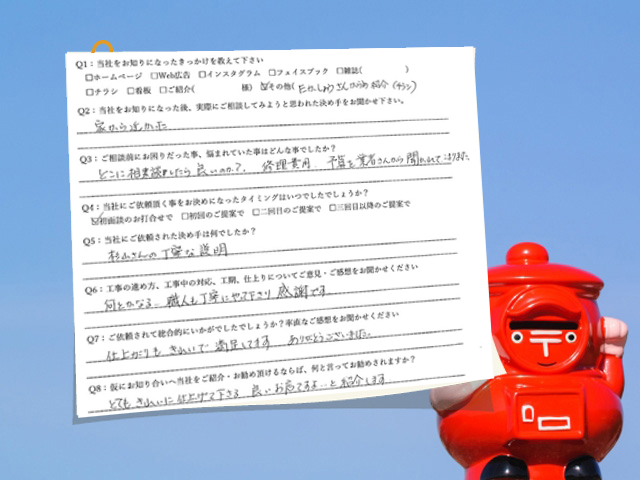 Q1：当社をお知りになったきっかけを教えて下さい
□ホームページ □Web広告 □インスタグラム □フェイスブック □雑誌( )
□チラシ □看板 □ご紹介( 様) ☑その他( さんからの紹介 (チラシ)
Q2：当社をお知りになった後、実際にご相談してみようと思われた決め手をお聞かせ下さい。
家から近かった
Q3：ご相談前にお困りだった事、悩まれていた事はどんな事でしたか？
どこに相談したら良いのか？、修理費用、予算を業者さんから聞かれてこまりました
Q4：当社にご依頼頂く事をお決めになったタイミングはいつでしたでしょうか？
☑初面談のお打合せで □初回のご提案で □二回目のご提案で □三回目以降のご提案で
Q5：当社にご依頼された決め手は何でしたか？
杉山さんの丁寧な説明
Q6：工事の進め方、工事中の対応、工期、仕上りについてご意見・ご感想をお聞かせください
職人も丁寧にやって下さり 感謝です
Q7：ご依頼されて総合的にいかがでしたでしょうか？率直なご感想をお聞かせください
仕上がりも きれいで 満足してます ありがとうございました。
Q8：仮にお知り合いへ当社をご紹介・お勧め頂けるならば、何と言ってお勧めされますか？
とても きれいに 仕上げて下さる 良いお店ですよ…と紹介します